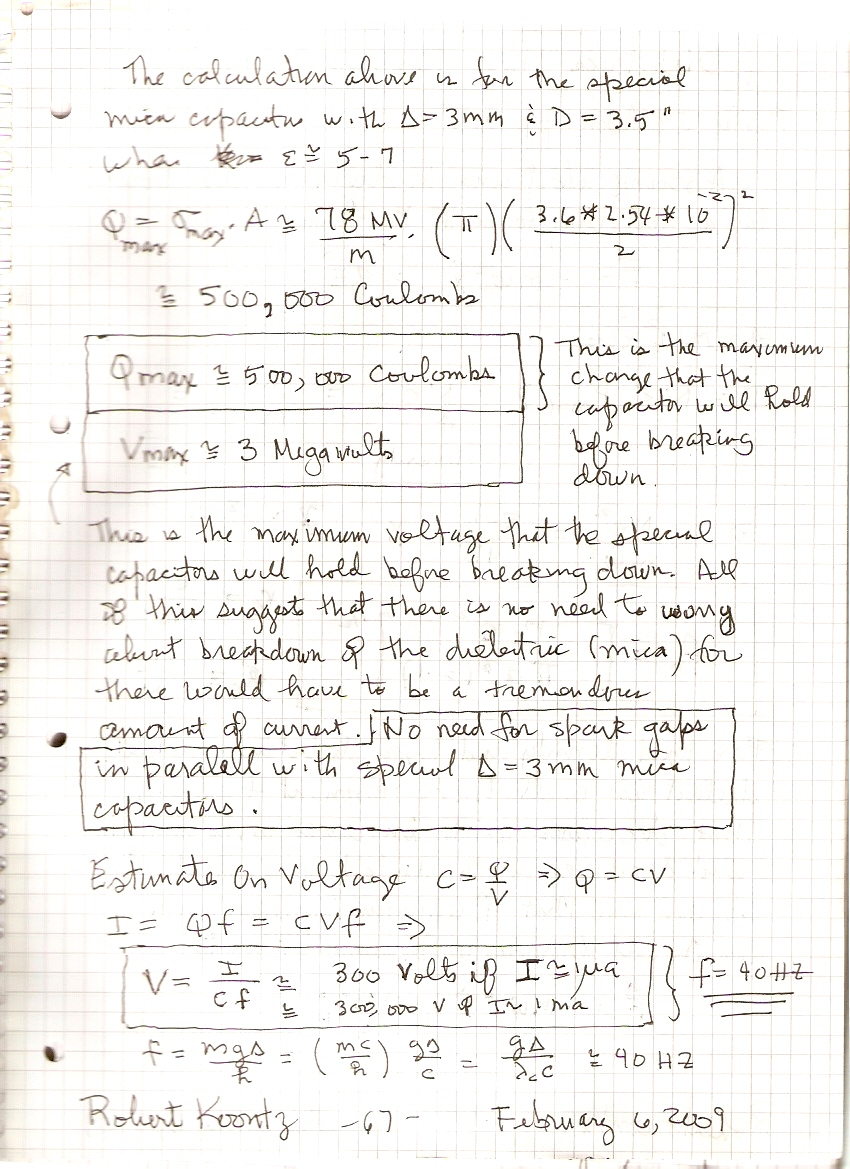 The calculation above is for the special
mica capacitor with Δ = 3mm & D = 3.5"
when ε ≅ 5-7
Q max = σ max · A ≅ 78 MV/m · (π)(3.6 * 2.54 * 10^-2 / 2)^2
≅ 500,000 Coulombs
Qmax ≅ 500,000 Coulombs
Vmax ≅ 3 Megavolts
This is the maximum
charge that the
capacitor will hold
before breaking
down.
This is the maximum voltage that the special
capacitors will hold before breaking down. All
of this suggests that there is no need to worry
about breakdown of the dielectric (mica) for
there would have to be a tremendous
amount of current. No need for spark gaps
in paralell with special Δ = 3mm mica
capacitors.
Estimate On Voltage C = Q/V ⇒ Q = CV
I = Qf = CVf ⇒
V = I/Cf ≅ 300 Volts if I ≅ 1μa
≅ 300,000 V if I ~ 1 ma
f = 40 HZ
f = mgΔ/h = (mc/h) gΔ/c = gΔ/λcC ≅ 40 HZ
Robert Koontz -67- February 6, 2009